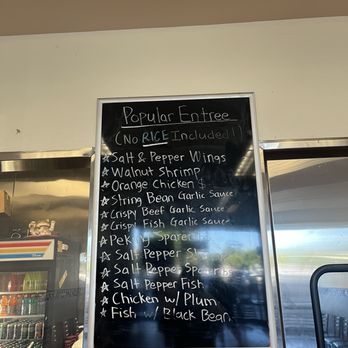 Popular Entree
(No RICE Included!)
☆ Salt & Pepper Wings
☆ Walnut Shrimp
☆ Orange Chicken $
☆ String Bean Garlic Sauce
☆ Crispy Beef Garlic Sauce
☆ Crispy Fish Garlic Sauce
☆ Peking
☆ Salt Pepper
☆ Salt Pepper
☆ Salt Pepper Fish
☆ Chicken w/ Plum
☆ Fish w/ Black Bean